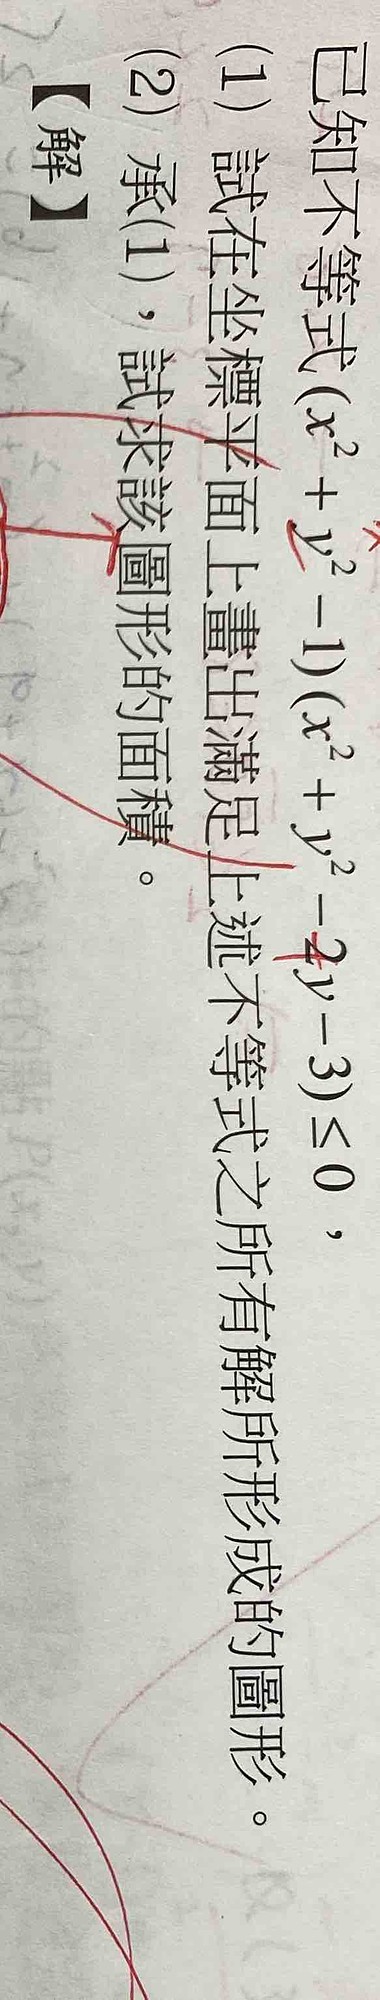 已知不等式(x² + y² − 1)(x² + y² − 2y − 3) ≤ 0，
(1) 試在坐標平面上畫出滿足上述不等式之所有解所形成的圖形。
(2) 承(1)，試求該圖形的面積。
【解】